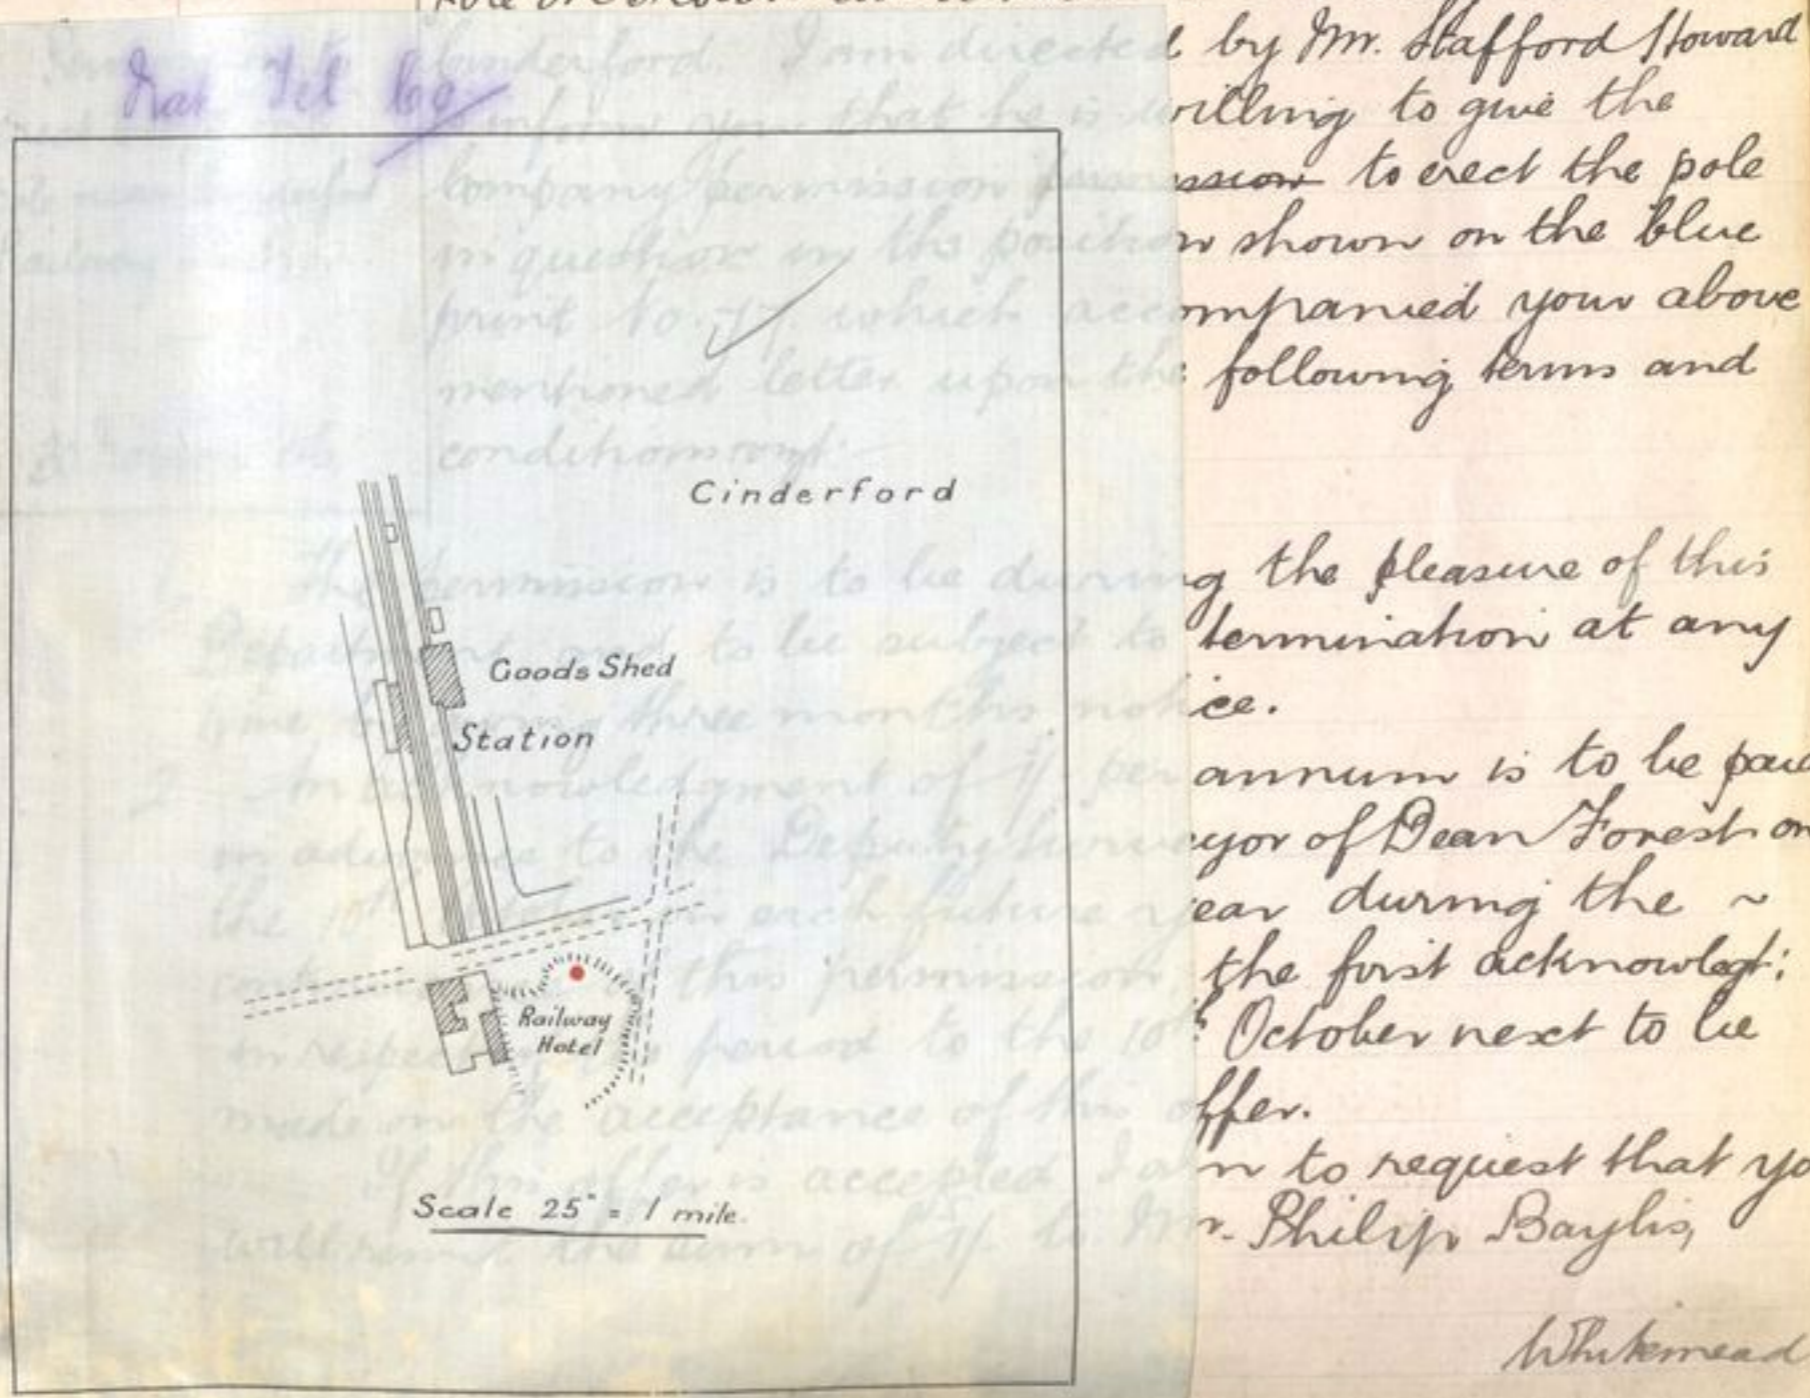 Nat Tel Co
Cinderford. I am directed by Mr. Stafford Howard
inform you that he is willing to give the
Company permission permission to erect the pole
in question in the position shown on the blue
print to which accompanied your above
mentioned letter upon the following terms and
conditions
Cinderford
The permission is to be during the pleasure of this
Department and to be subject to termination at any
time three months notice.
Goods Shed
Station
acknowledgment of 1/. per annum is to be paid
in advance to the Deputy Surveyor of Dean Forest on
the 10th October in each future year during the ~
of this permission, the first acknowledgt:
in respect of period to the 10th October next to be
made on the acceptance of this offer.
Railway
Hotel
If this offer is accepted I am to request that yo
will remit the sum of 1/. to Mr. Philip Baylis,
Scale 25" = 1 mile.
Whitemead